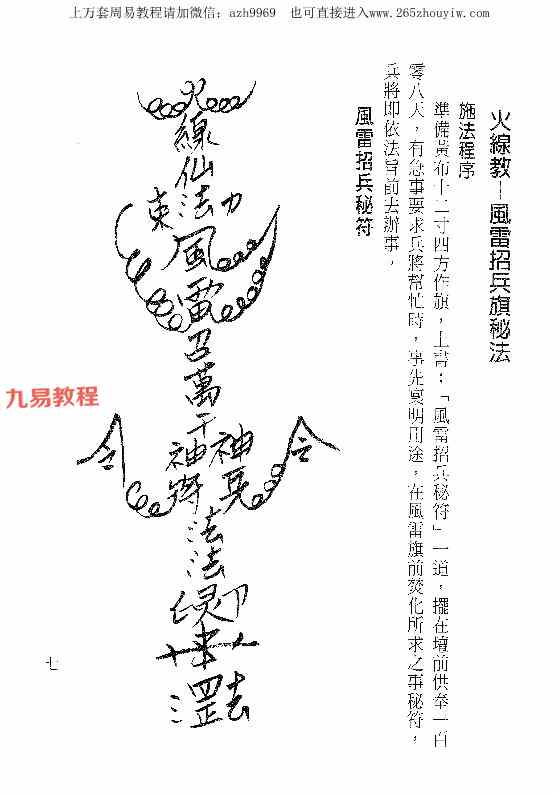 上万套周易教程请加微信：azh9969　也可直接进入www.265zhouyiw.com
火線教－風雷招兵旗秘法
施法程序
準備黃布十二寸四方作旗，上書：「風雷招兵秘符」一道，擺在壇前供奉一百
零八天，有急事要求兵將幫忙時，事先稟明用途，在風雷旗前焚化所求之事秘符，
兵將即依法旨前去辦事，
風雷招兵秘符
火
線
仙
法
風
雷
召
萬
千
神 神
兵
法
法
令 令
九易教程
七